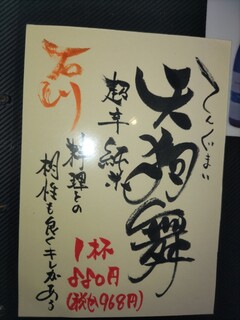 てんぐまい
天狗舞
石川
超辛 純米
料理との
相性も良くキレがある
1杯
880円
(税込968円)